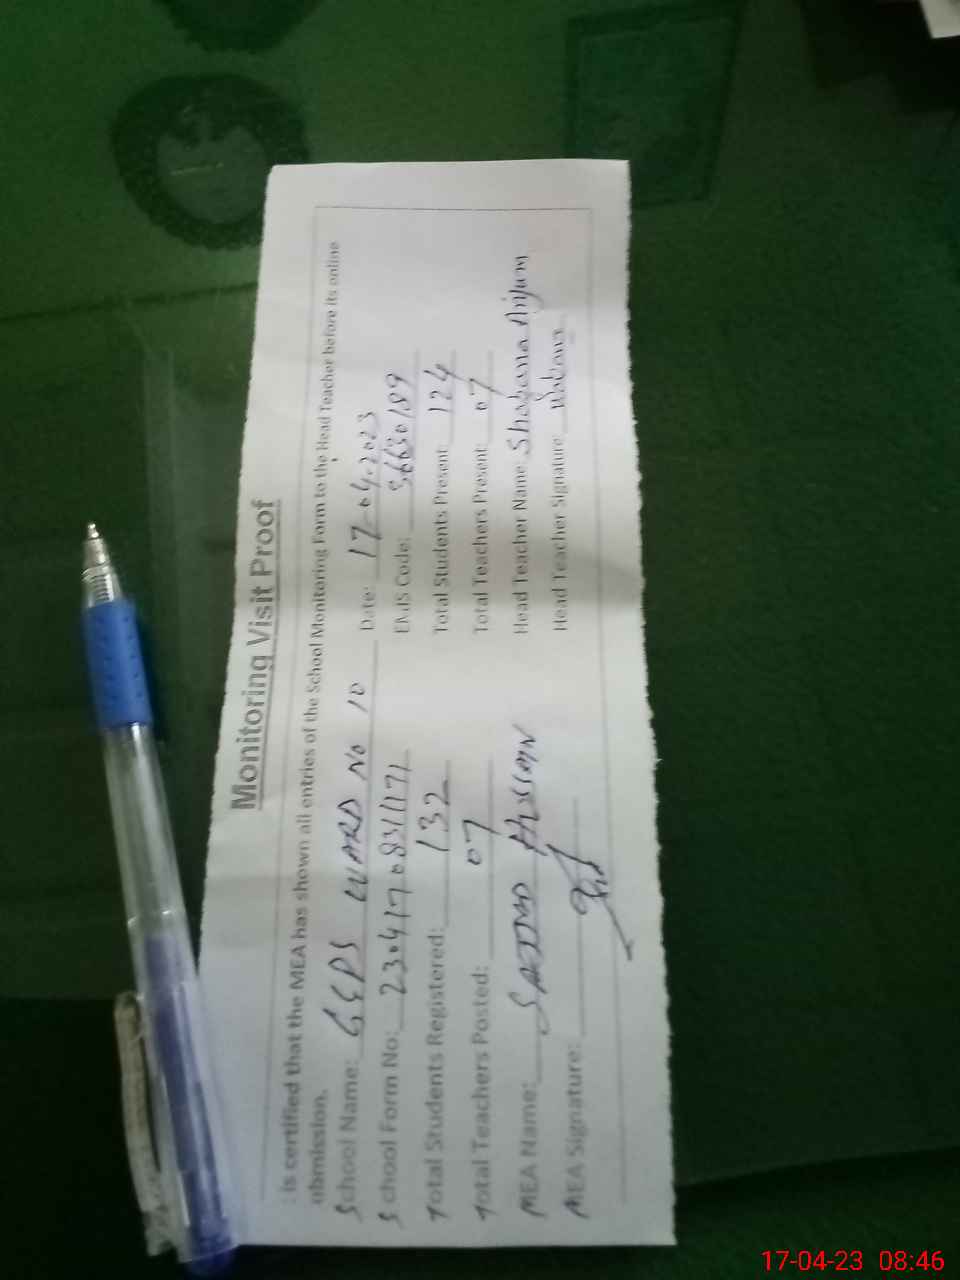 Monitoring Visit Proof
is certified that the MEA has shown all entries of the School Monitoring Form to the Head Teacher before its online
ubmission.
School Name: GGPS WARD No 10 Date: 17-04-2023
School Form No: 230417083117171 EMIS Code: 36630189
Total Students Registered: 132 Total Students Present: 124
Total Teachers Posted: 07 Total Teachers Present: 07
MEA Name: SAJJAD HUSSAIN Head Teacher Name: Shabana Anjum
MEA Signature: Head Teacher Signature:
17-04-23 08:46